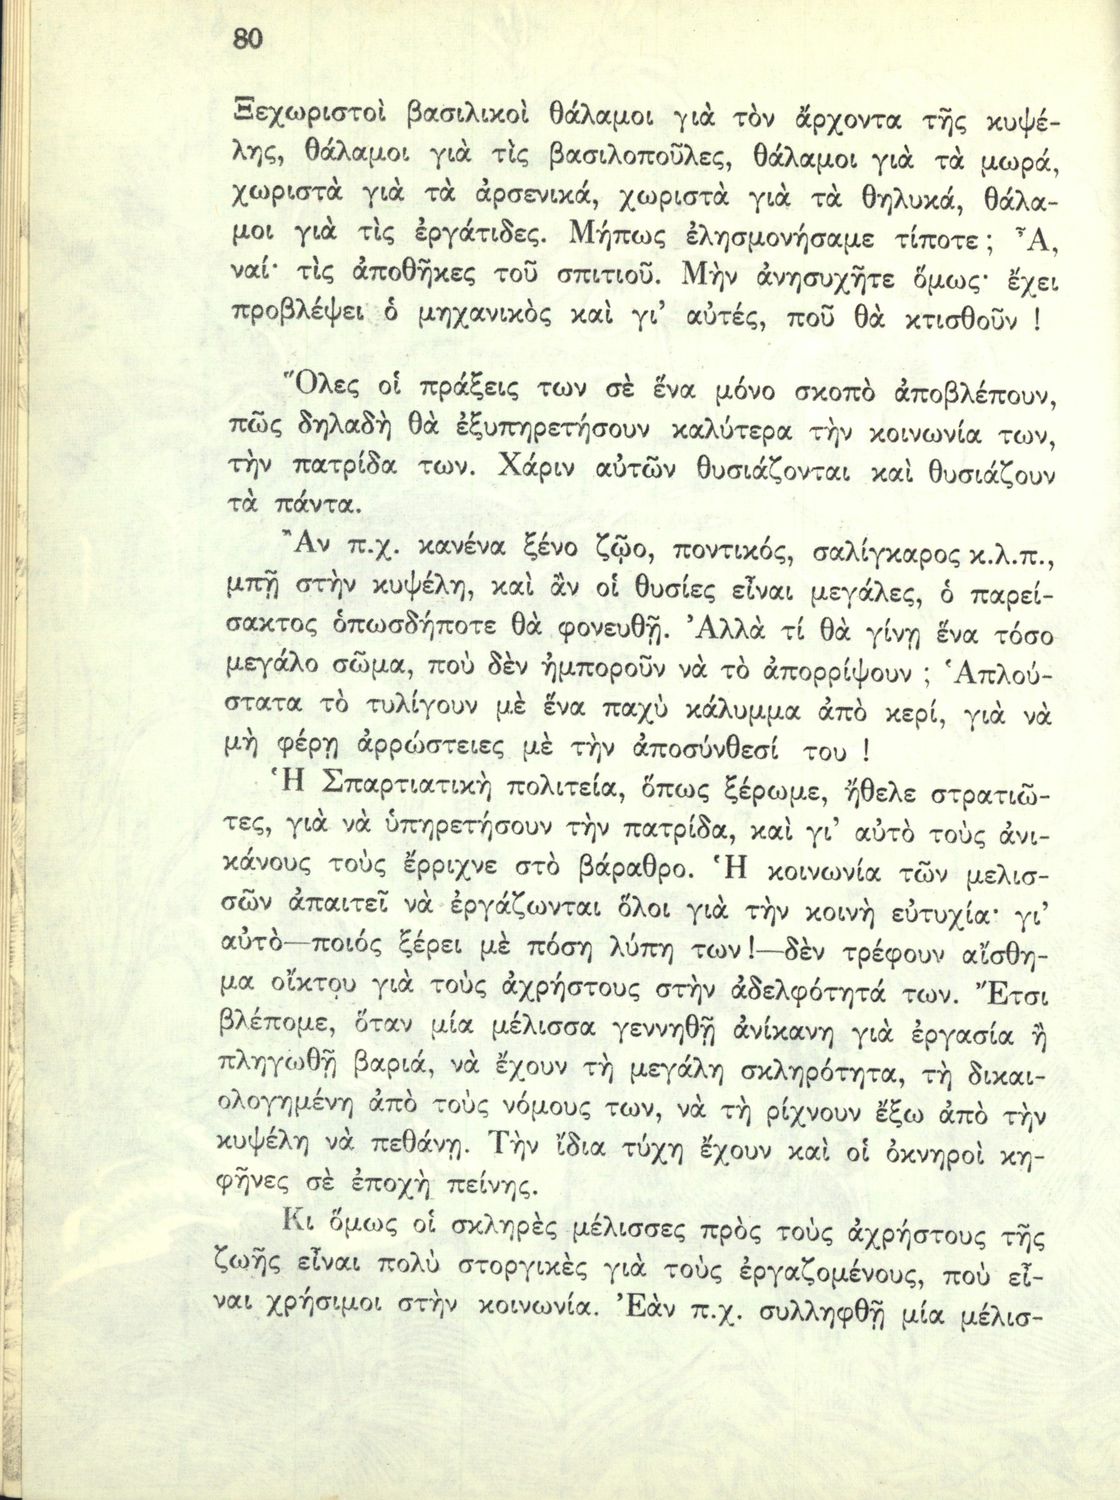 80
Ξεχωριστοὶ βασιλικοὶ θάλαμοι γιὰ τὸν ἄρχοντα τῆς κυψέ-
λης, θάλαμοι γιὰ τὶς βασιλοποῦλες, θάλαμοι γιὰ τὰ μωρά,
χωριστὰ γιὰ τὰ ἀρσενικά, χωριστὰ γιὰ τὰ θηλυκά, θάλα-
μοι γιὰ τὶς ἐργάτιδες. Μήπως ἐλησμονήσαμε τίποτε ; Ἆ,
ναί· τὶς ἀποθῆκες τοῦ σπιτιοῦ. Μὴν ἀνησυχῆτε ὅμως· ἔχει
προβλέψει ὁ μηχανικὸς καὶ γι’ αὐτές, ποῦ θὰ κτισθοῦν !
Ὅλες οἱ πράξεις των σὲ ἕνα μόνο σκοπὸ ἀποβλέπουν,
πῶς δηλαδὴ θὰ ἐξυπηρετήσουν καλύτερα τὴν κοινωνία των,
τὴν πατρίδα των. Χάριν αὐτῶν θυσιάζονται καὶ θυσιάζουν
τὰ πάντα.
Ἂν π.χ. κανένα ξένο ζῷο, ποντικός, σαλίγκαρος κ.λ.π.,
μπῇ στὴν κυψέλη, καὶ ἂν οἱ θυσίες εἶναι μεγάλες, ὁ παρεί-
σακτος ὁπωσδήποτε θὰ φονευθῇ. Ἀλλὰ τί θὰ γίνῃ ἕνα τόσο
μεγάλο σῶμα, ποὺ δὲν ἠμποροῦν νὰ τὸ ἀπορρίψουν ; Ἁπλού-
στατα τὸ τυλίγουν μὲ ἕνα παχὺ κάλυμμα ἀπὸ κερί, γιὰ νὰ
μὴ φέρῃ ἀρρώστειες μὲ τὴν ἀποσύνθεσί του !
Ἡ Σπαρτιατικὴ πολιτεία, ὅπως ξέρωμε, ἤθελε στρατιῶ-
τες, γιὰ νὰ ὑπηρετήσουν τὴν πατρίδα, καὶ γι’ αὐτὸ τοὺς ἀνι-
κάνους τοὺς ἔρριχνε στὸ βάραθρο. Ἡ κοινωνία τῶν μελισ-
σῶν ἀπαιτεῖ νὰ ἐργάζωνται ὅλοι γιὰ τὴν κοινὴ εὐτυχία· γι’
αὐτὸ—ποιός ξέρει μὲ πόση λύπη των !—δὲν τρέφουν αἴσθη-
μα οἴκτου γιὰ τοὺς ἀχρήστους στὴν ἀδελφότητά των. Ἔτσι
βλέπομε, ὅταν μία μέλισσα γεννηθῇ ἀνίκανη γιὰ ἐργασία ἢ
πληγωθῇ βαριά, νὰ ἔχουν τὴ μεγάλη σκληρότητα, τὴ δικαι-
ολογημένη ἀπὸ τοὺς νόμους των, νὰ τὴ ρίχνουν ἔξω ἀπὸ τὴν
κυψέλη νὰ πεθάνῃ. Τὴν ἴδια τύχη ἔχουν καὶ οἱ ὀκνηροὶ κη-
φῆνες σὲ ἐποχὴ πείνης.
Κι ὅμως οἱ σκληρὲς μέλισσες πρὸς τοὺς ἀχρήστους τῆς
ζωῆς εἶναι πολὺ στοργικὲς γιὰ τοὺς ἐργαζομένους, ποὺ εἶ-
ναι χρήσιμοι στὴν κοινωνία. Ἐὰν π.χ. συλληφθῇ μία μέλισ-